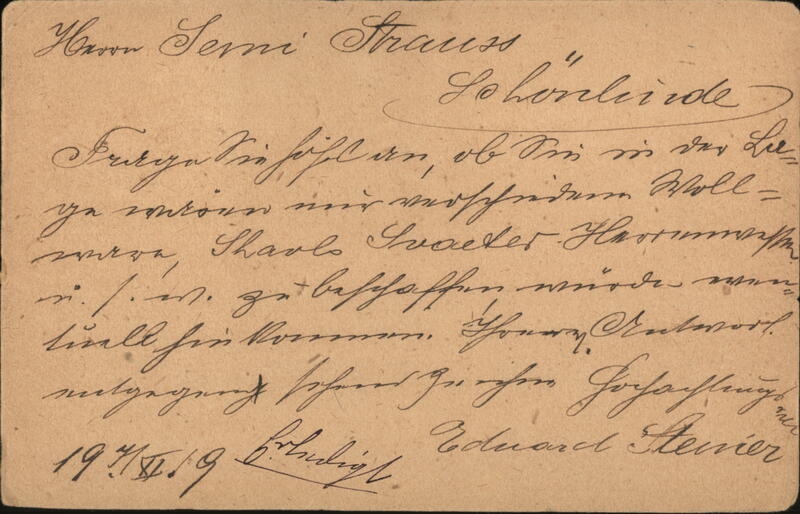 Herrn Semi Strauss
Schönlinde
Frage Sie höfl. an, ob Sie in der La=
ge wären mir verschiedene Woll=
ware, Shavls Svaeter Herrenwesten
u. s. w. zu beschaffen, würde even=
tuell hin kommen. Ihrer Antwort
entgegen sehend zeichne Hochachtungs
voll
Eduard Steiner
19 7/XI. 19 Erledigt